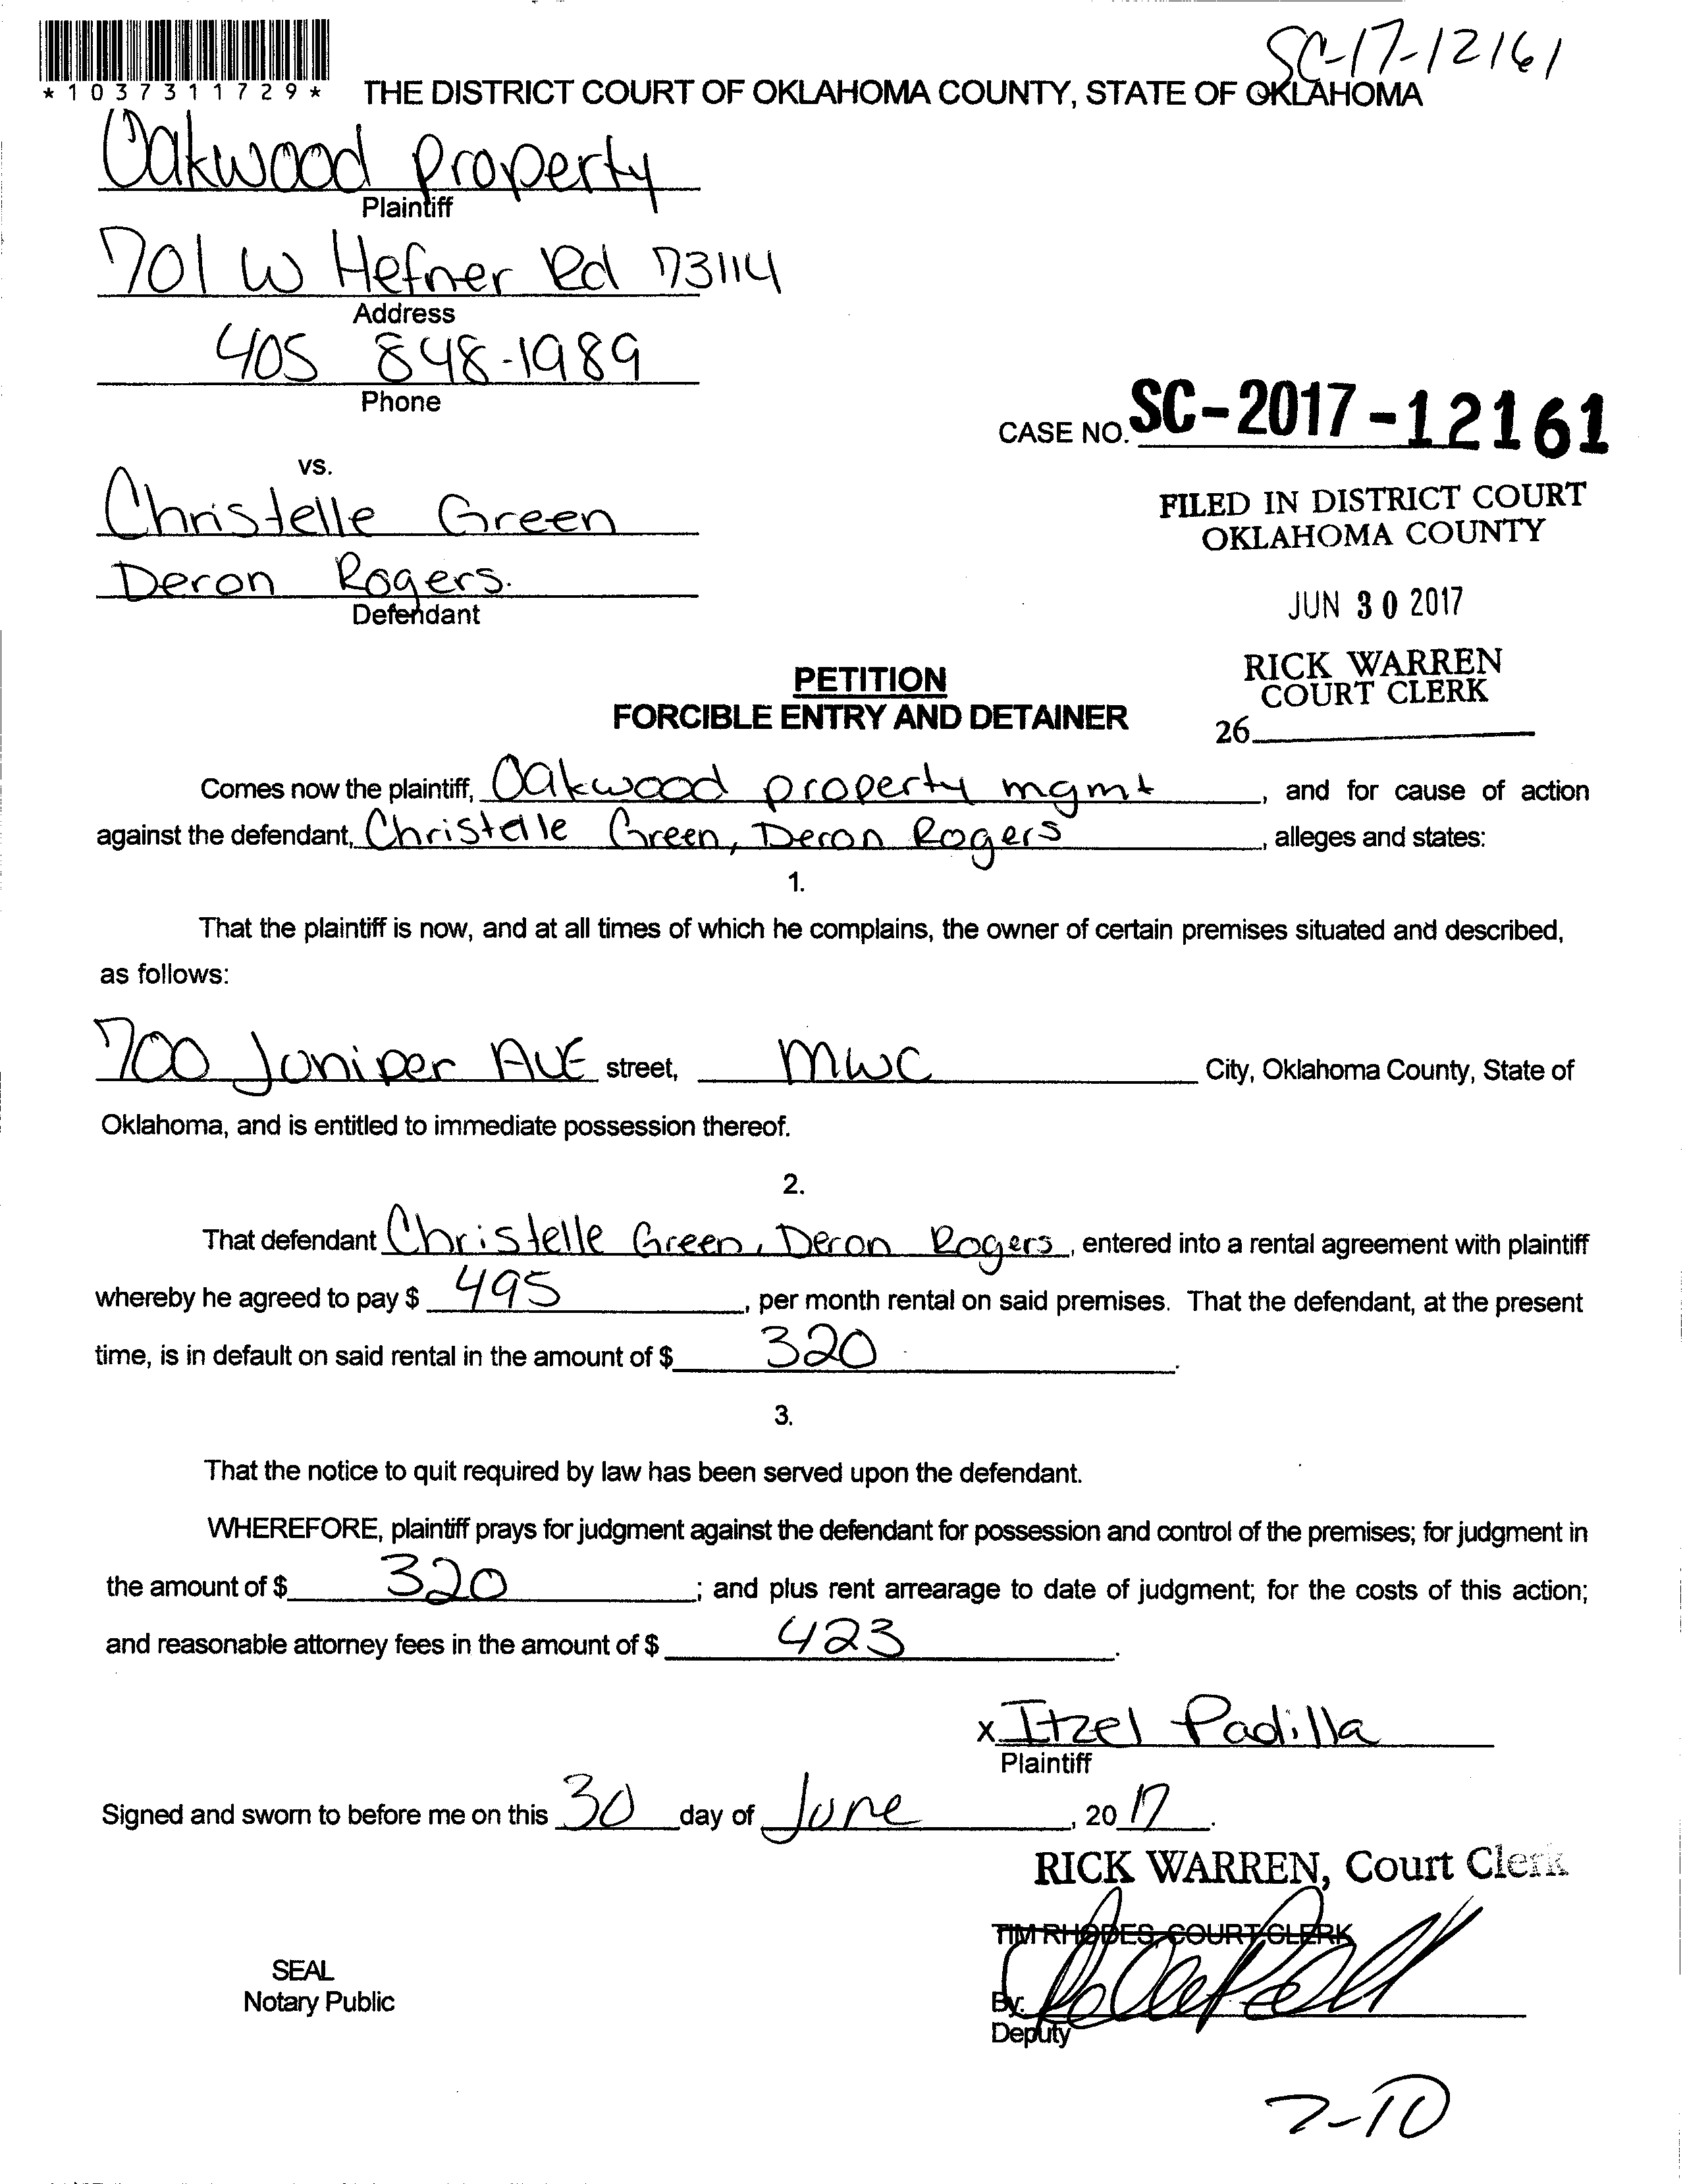 SC-17-12161
*1037311729*
THE DISTRICT COURT OF OKLAHOMA COUNTY, STATE OF OKLAHOMA
Oakwood property
Plaintiff
701 W Hefner Rd 73114
Address
405 848-1989
Phone
CASE NO. SC-2017-12161
vs.
Christelle Green
FILED IN DISTRICT COURT
OKLAHOMA COUNTY
Deron Rogers.
Defendant
JUN 30 2017
RICK WARREN
COURT CLERK
26
PETITION
FORCIBLE ENTRY AND DETAINER
Comes now the plaintiff, Oakwood property mgmt, and for cause of action
against the defendant, Christelle Green, Deron Rogers, alleges and states:
1.
That the plaintiff is now, and at all times of which he complains, the owner of certain premises situated and described,
as follows:
700 Juniper AVE street, MWC City, Oklahoma County, State of
Oklahoma, and is entitled to immediate possession thereof.
2.
That defendant Christelle Green, Deron Rogers, entered into a rental agreement with plaintiff
whereby he agreed to pay $ 495, per month rental on said premises. That the defendant, at the present
time, is in default on said rental in the amount of $ 320.
3.
That the notice to quit required by law has been served upon the defendant.
WHEREFORE, plaintiff prays for judgment against the defendant for possession and control of the premises; for judgment in
the amount of $ 320; and plus rent arrearage to date of judgment; for the costs of this action;
and reasonable attorney fees in the amount of $ 423.
x Itzel Padilla
Plaintiff
Signed and sworn to before me on this 30 day of June, 20 17.
RICK WARREN, Court Clerk
TIM RHODES, COURT CLERK
SEAL
Notary Public
By:
Deputy
7-10